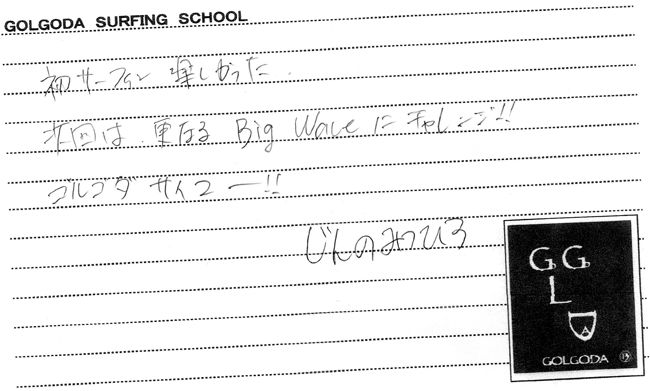 GOLGODA SURFING SCHOOL
初サーフィン 楽しかった.
次回は、更なる Big Wave に チャレンジ!!
ゴルゴダ サイコー!!
じんのみつひろ
G G
L
A
GOLGODA